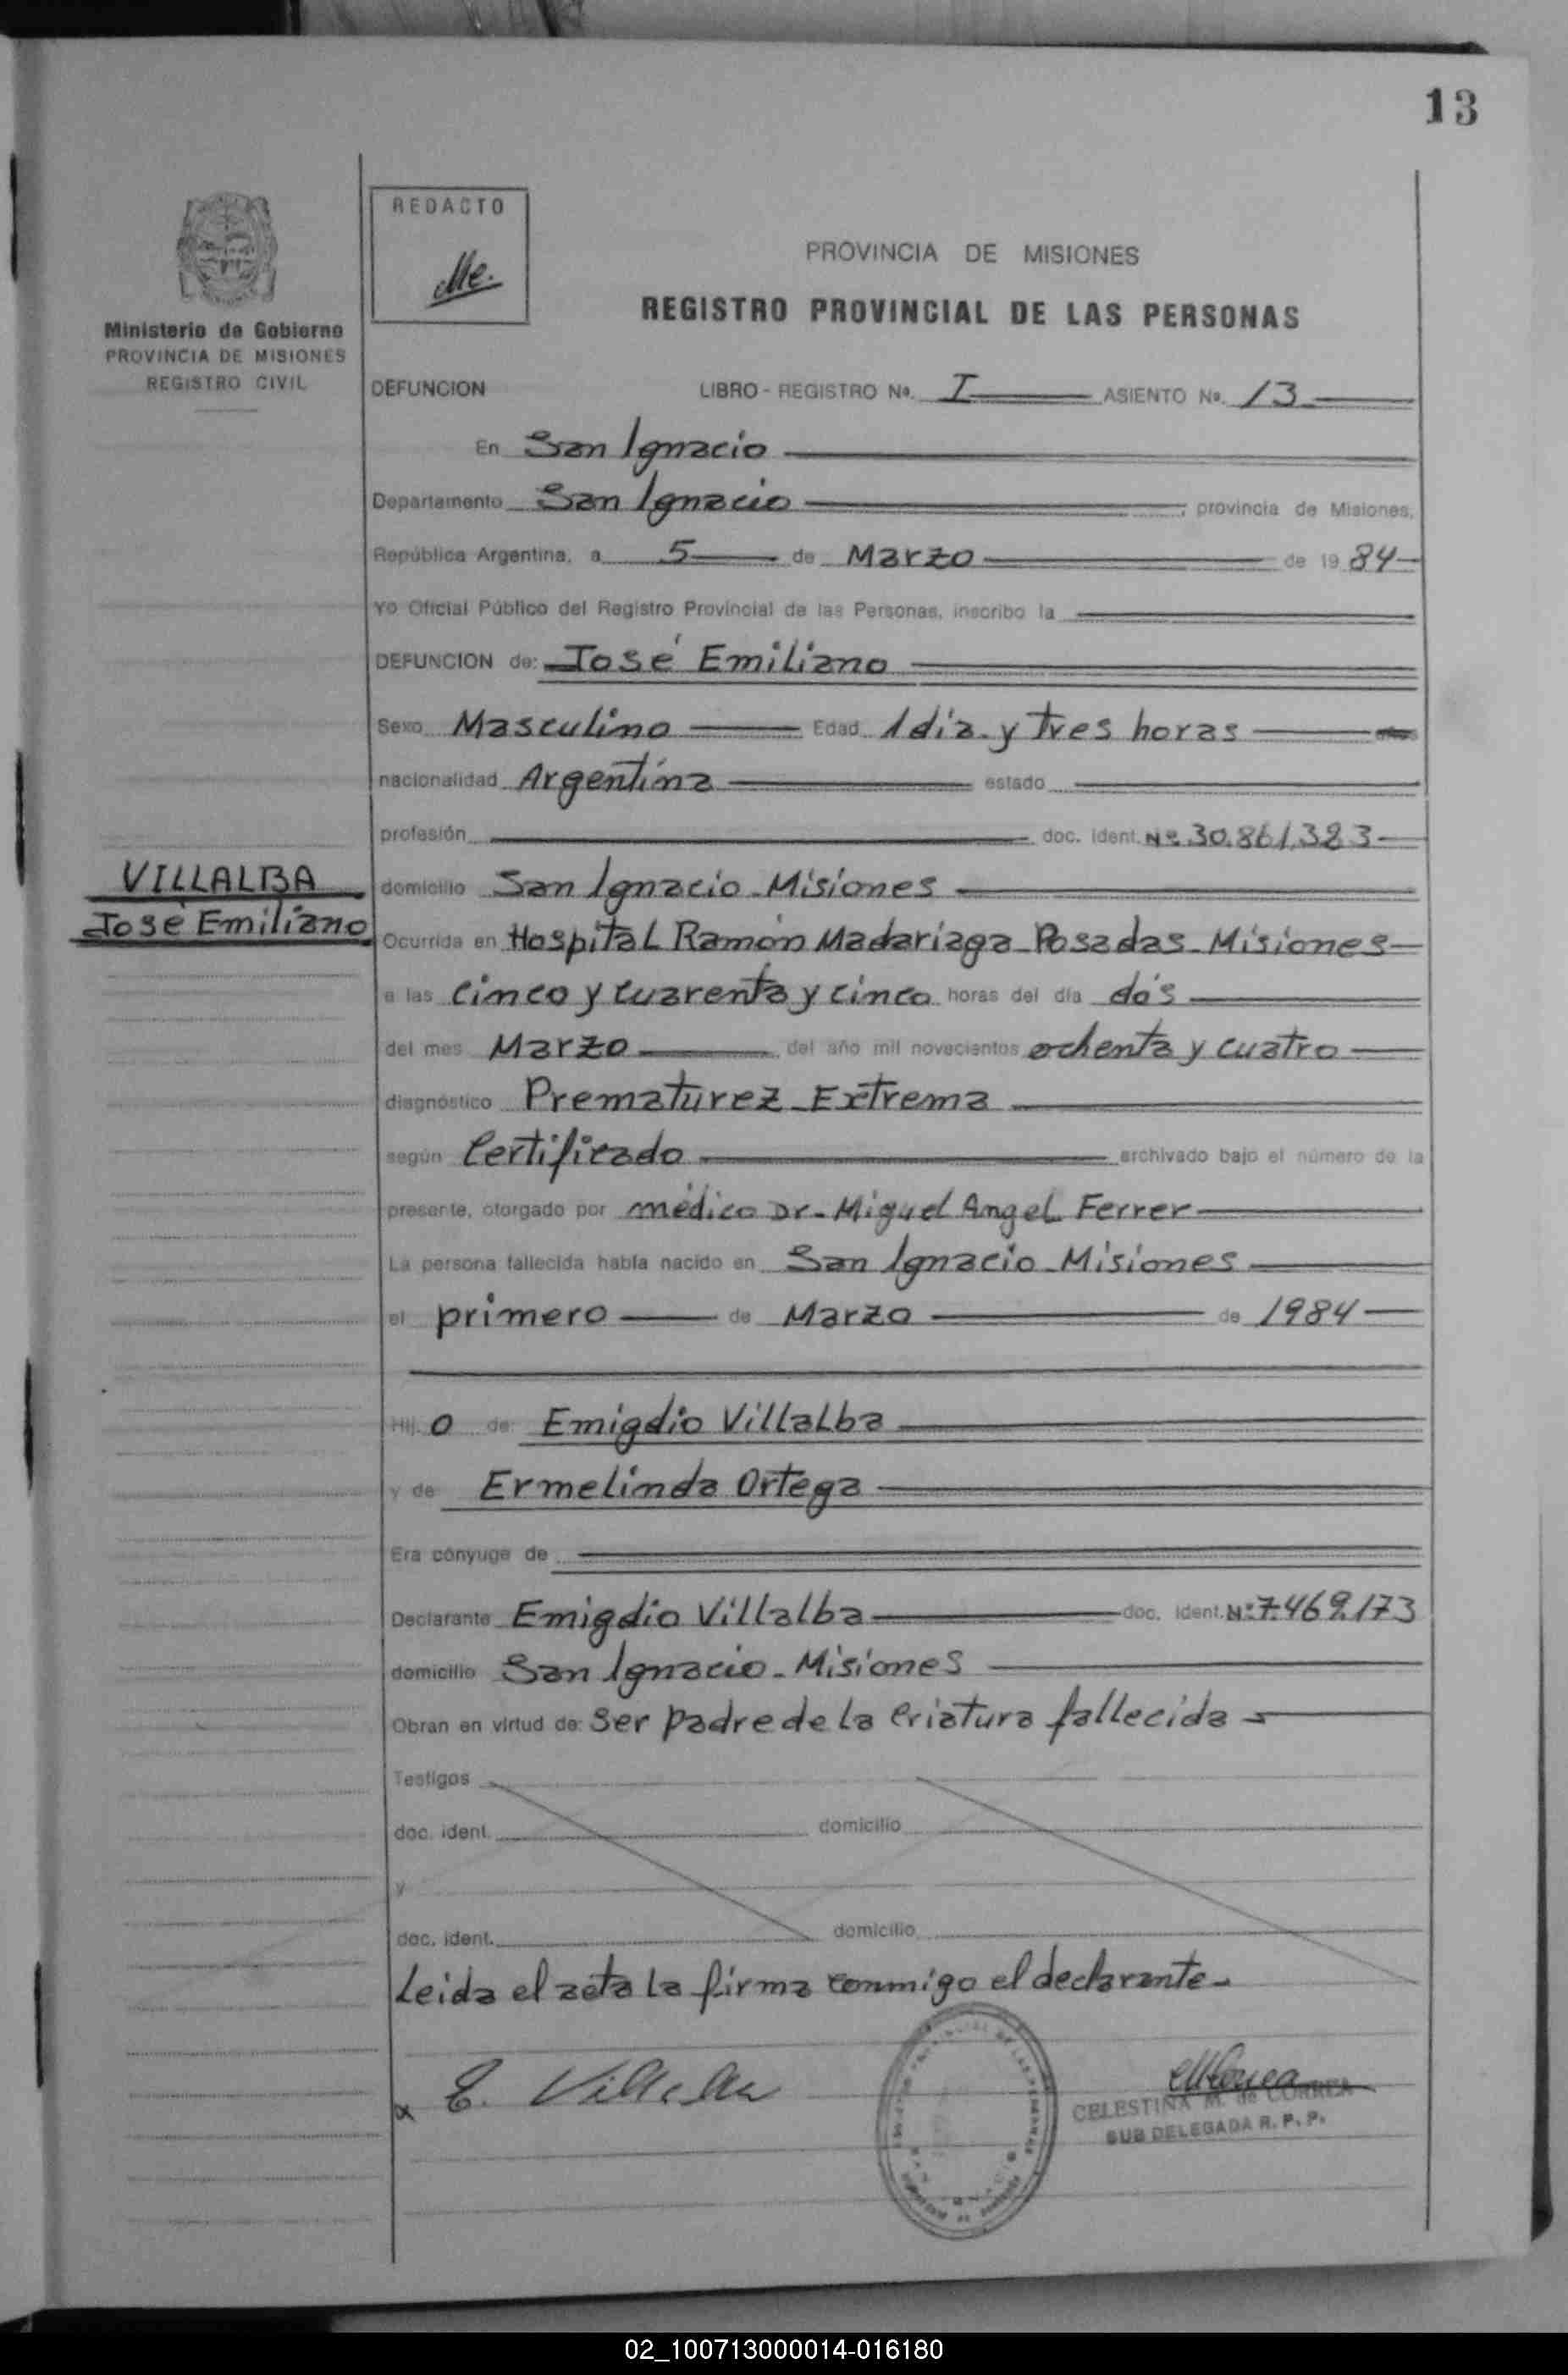 13
REDACTO
Me.
Ministerio de Gobierno
PROVINCIA DE MISIONES
REGISTRO CIVIL
PROVINCIA DE MISIONES
REGISTRO PROVINCIAL DE LAS PERSONAS
DEFUNCION LIBRO - REGISTRO Nº. I ASIENTO Nº. 13
En San Ignacio
Departamento San Ignacio ; provincia de Misiones,
República Argentina, a 5 de Marzo de 1984
Yo Oficial Público del Registro Provincial de las Personas, inscribo la
DEFUNCION de: José Emiliano
Sexo Masculino Edad 1 día y tres horas
nacionalidad Argentina estado
profesión doc. ident. Nº 30.861.383
VILLALBA
José Emiliano
domicilio San Ignacio - Misiones
Ocurrida en Hospital Ramón Madariaga - Posadas - Misiones
a las Cinco y cuarenta y cinco horas del día dos
del mes Marzo del año mil novecientos ochenta y cuatro
diagnóstico Prematurez - Extrema
según Certificado archivado bajo el número de la
presente, otorgado por médico Dr - Miguel Angel Ferrer
La persona fallecida había nacido en San Ignacio - Misiones
el primero de Marzo de 1984
Hij o de Emigdio Villalba
y de Ermelinda Ortega
Era cónyuge de
Declarante Emigdio Villalba doc. ident. Nº 7.469.173
domicilio San Ignacio - Misiones
Obran en virtud de: Ser padre de la criatura fallecida
Testigos
doc. ident. domicilio
y
doc. ident. domicilio
Leida el acta la firma conmigo el declarante -
E. Villalba
CELESTINA M. de CORREA
SUB DELEGADA R. P. P.
02_100713000014-016180